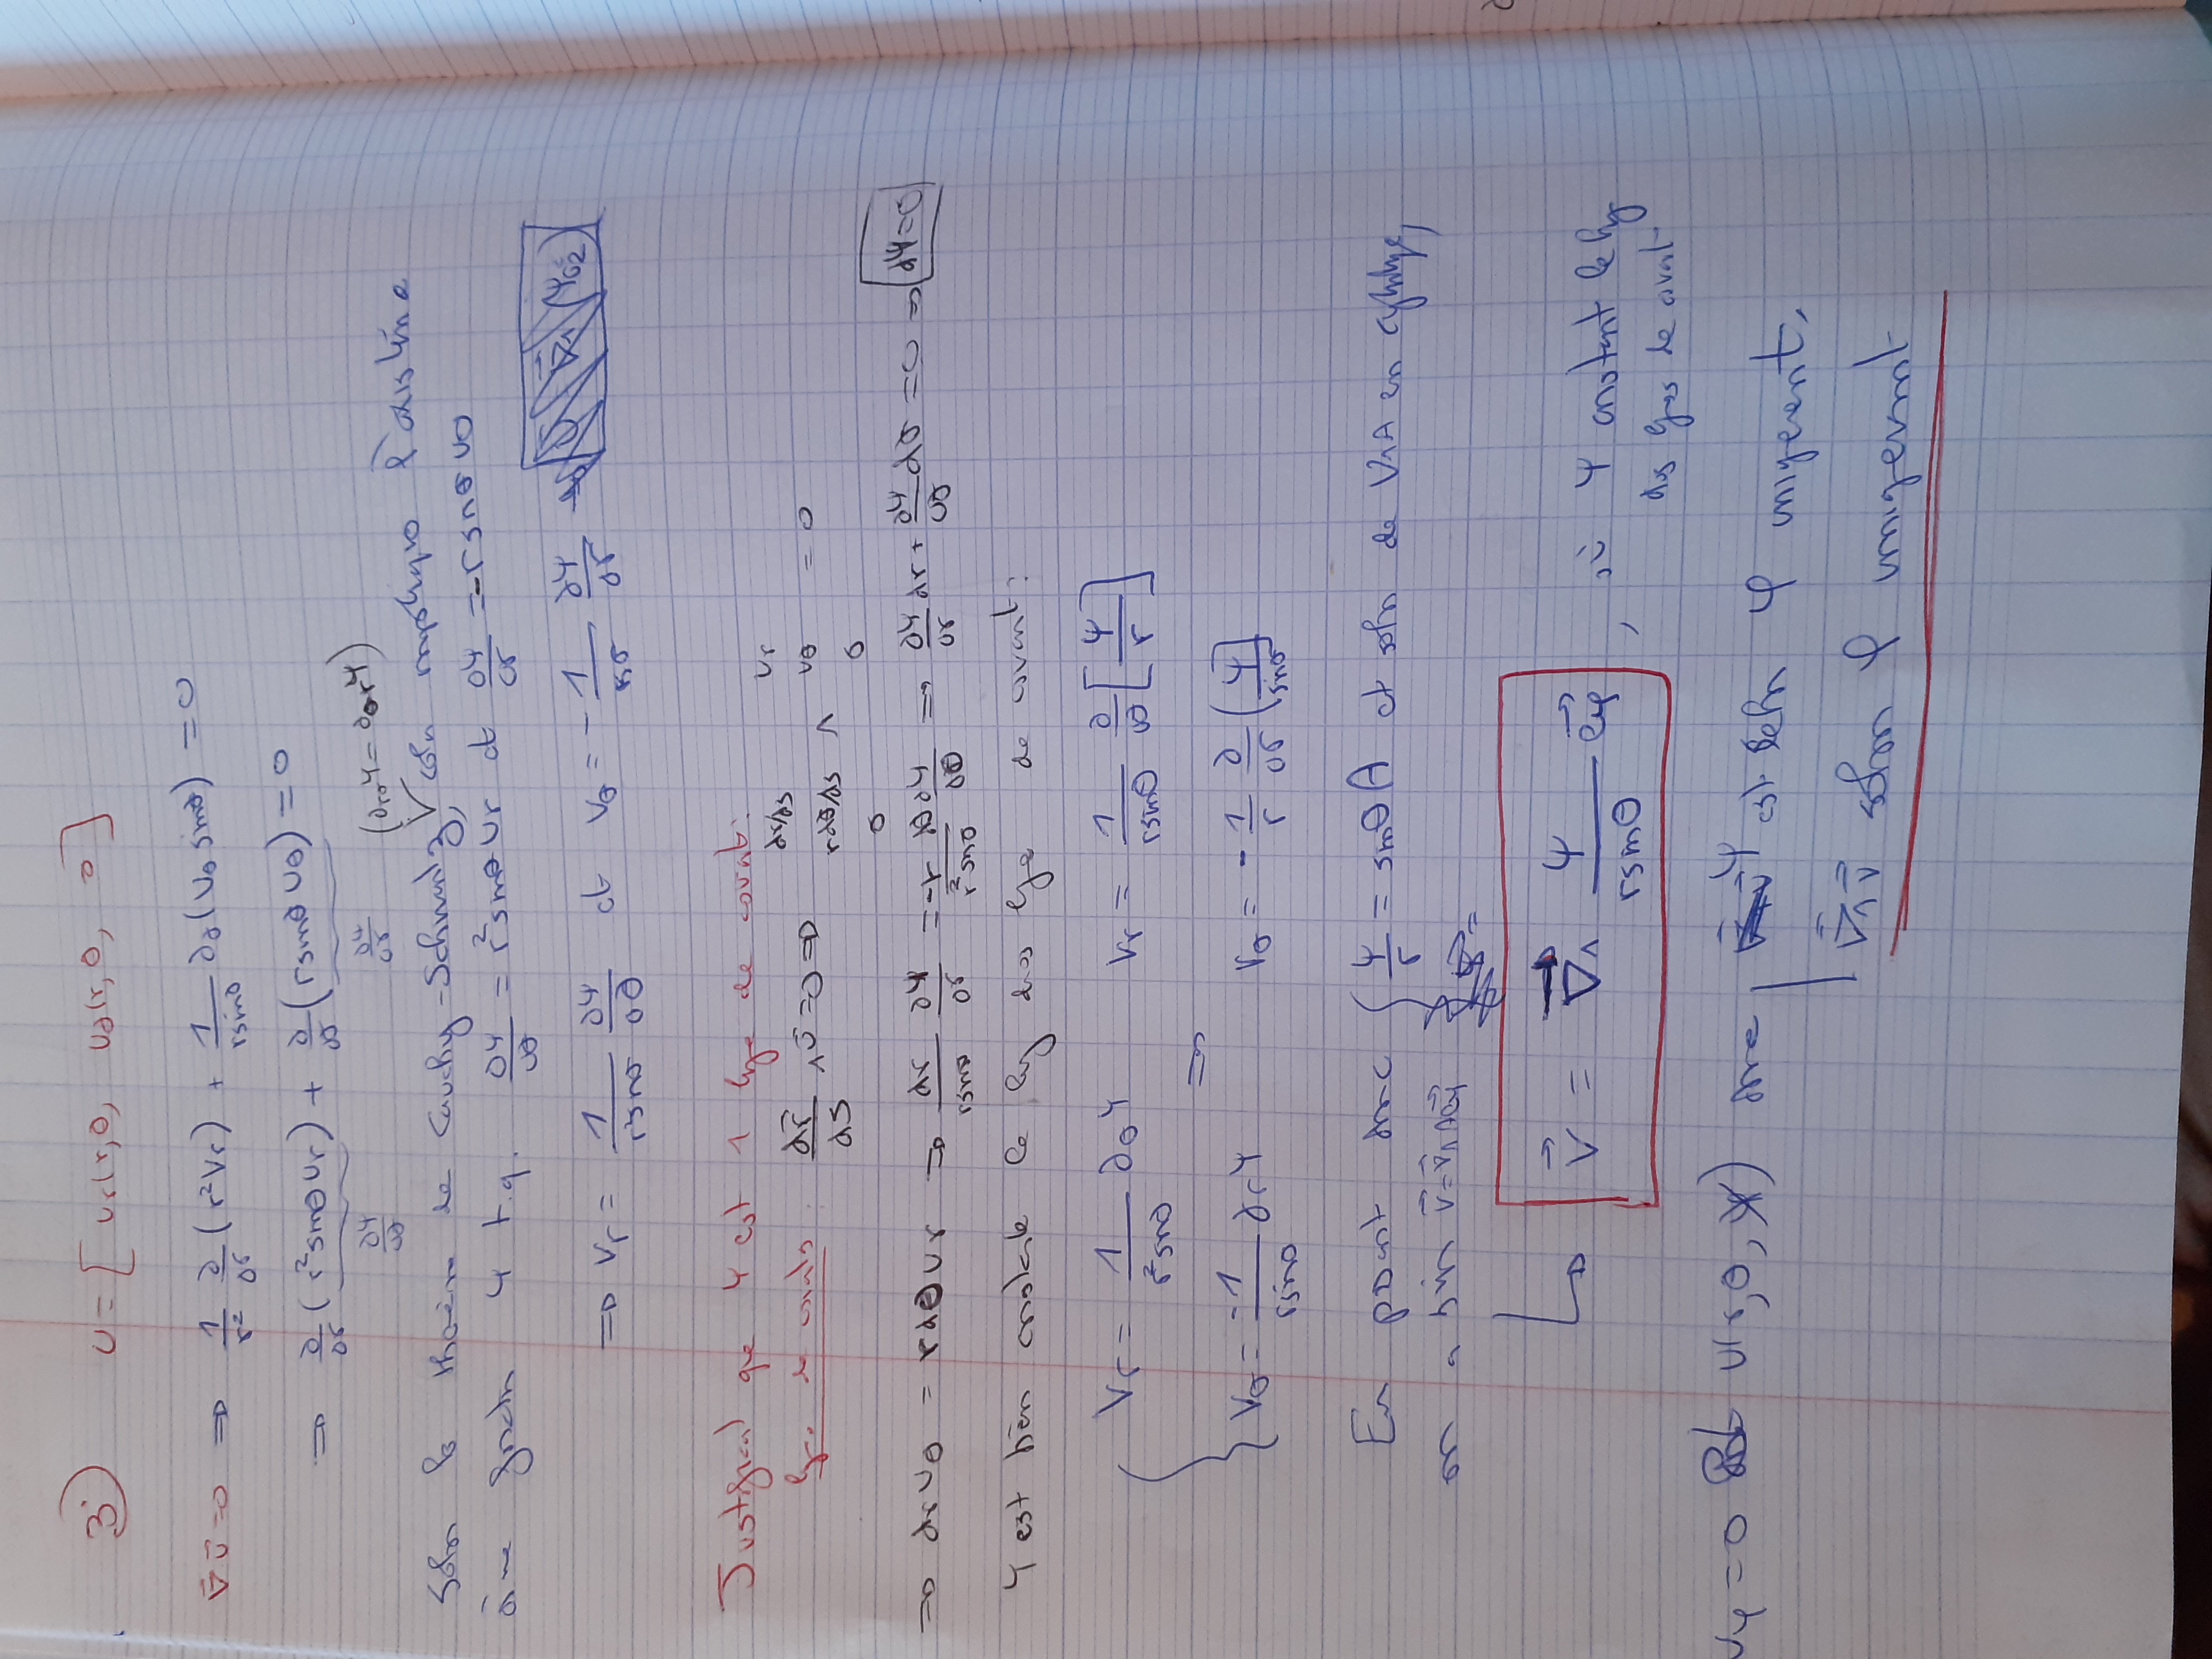 3) U = [ Ur(r,θ, Uθ(r,θ, 0 ]
∇⃗ U⃗ = 0 ⇒ 1/r² ∂/∂r (r²Vr) + 1/(rsinθ) ∂θ(Vθ sinθ) = 0
⇒ ∂/∂r (r²sinθ Ur) + ∂/∂θ (rsinθ Uθ) = 0
∂Ψ/∂θ ∂Ψ/∂r (∂rθΨ = ∂θrΨ)
Selon le théorème de Cauchy-Schwartz, cela implique l'existence
d'une fonction Ψ t.q. ∂Ψ/∂θ = r²sinθ Ur et ∂Ψ/∂r = -rsinθ Uθ
⇒ Vr = 1/(r²sinθ) ∂Ψ/∂θ et Vθ = - ∂Ψ/∂r
que Ψ est 1 ligne de courant:
dr⃗/ds ∧ U⃗ = 0 ⇒ dr/ds rdθ/ds 0 ∧ Ur Uθ 0 = 0
⇒ dr Uθ = r dθ Ur ⇒ dr/(rsinθ) ∂Ψ/∂r = -r dθ/(r²sinθ) ∂Ψ/∂θ ⇒ ∂Ψ/∂r dr + ∂Ψ/∂θ dθ = 0 ⇒ dΨ=0
Ψ est bien constante le lg des lgs de courant:
Vr = 1/(r²sinθ) ∂θΨ Vr = 1/(rsinθ) ∂/∂θ [Ψ/r]
⇒
Vθ = -1/(rsinθ) ∂rΨ Vθ = - 1/r ∂/∂r (Ψ/sinθ]
En donc { Ψ/r = sinθ A et selon de ∇∧A en
on a bien v⃗ = ∇⃗∧Ae⃗φ
V⃗ = ∇⃗∧ Ψ/(rsinθ) e⃗φ , où Ψ constant le lg
des lgs de courant
Vφ = 0 et U(r,θ, donc Ψ est selon φ uniquement,
∇⃗∧v⃗ selon φ uniquement